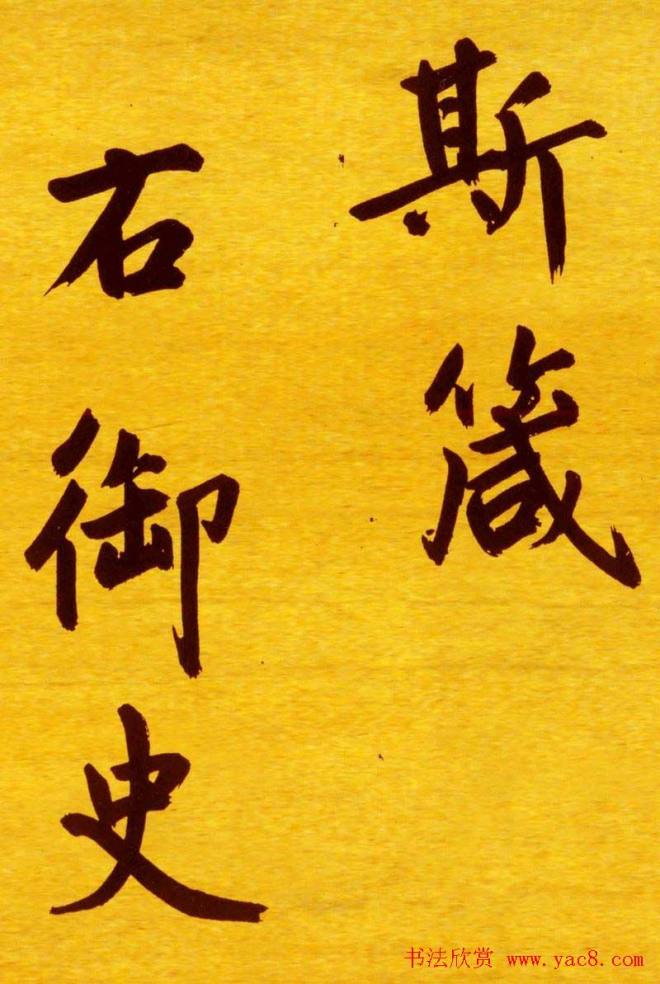 斯箴
右御史
书法欣赏 www.yac8.com